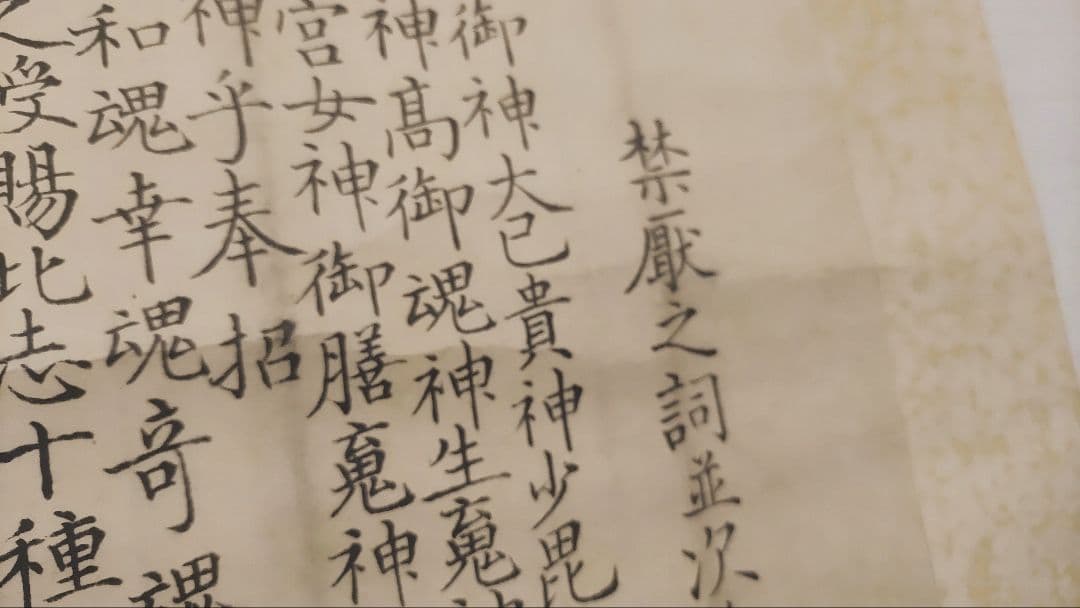 禁厭之詞並次
御神大已貴神少毘
神髙御魂神生䰟
宮女神御膳䰟神
神乎奉招
和魂幸魂竒魂
受賜比志十種